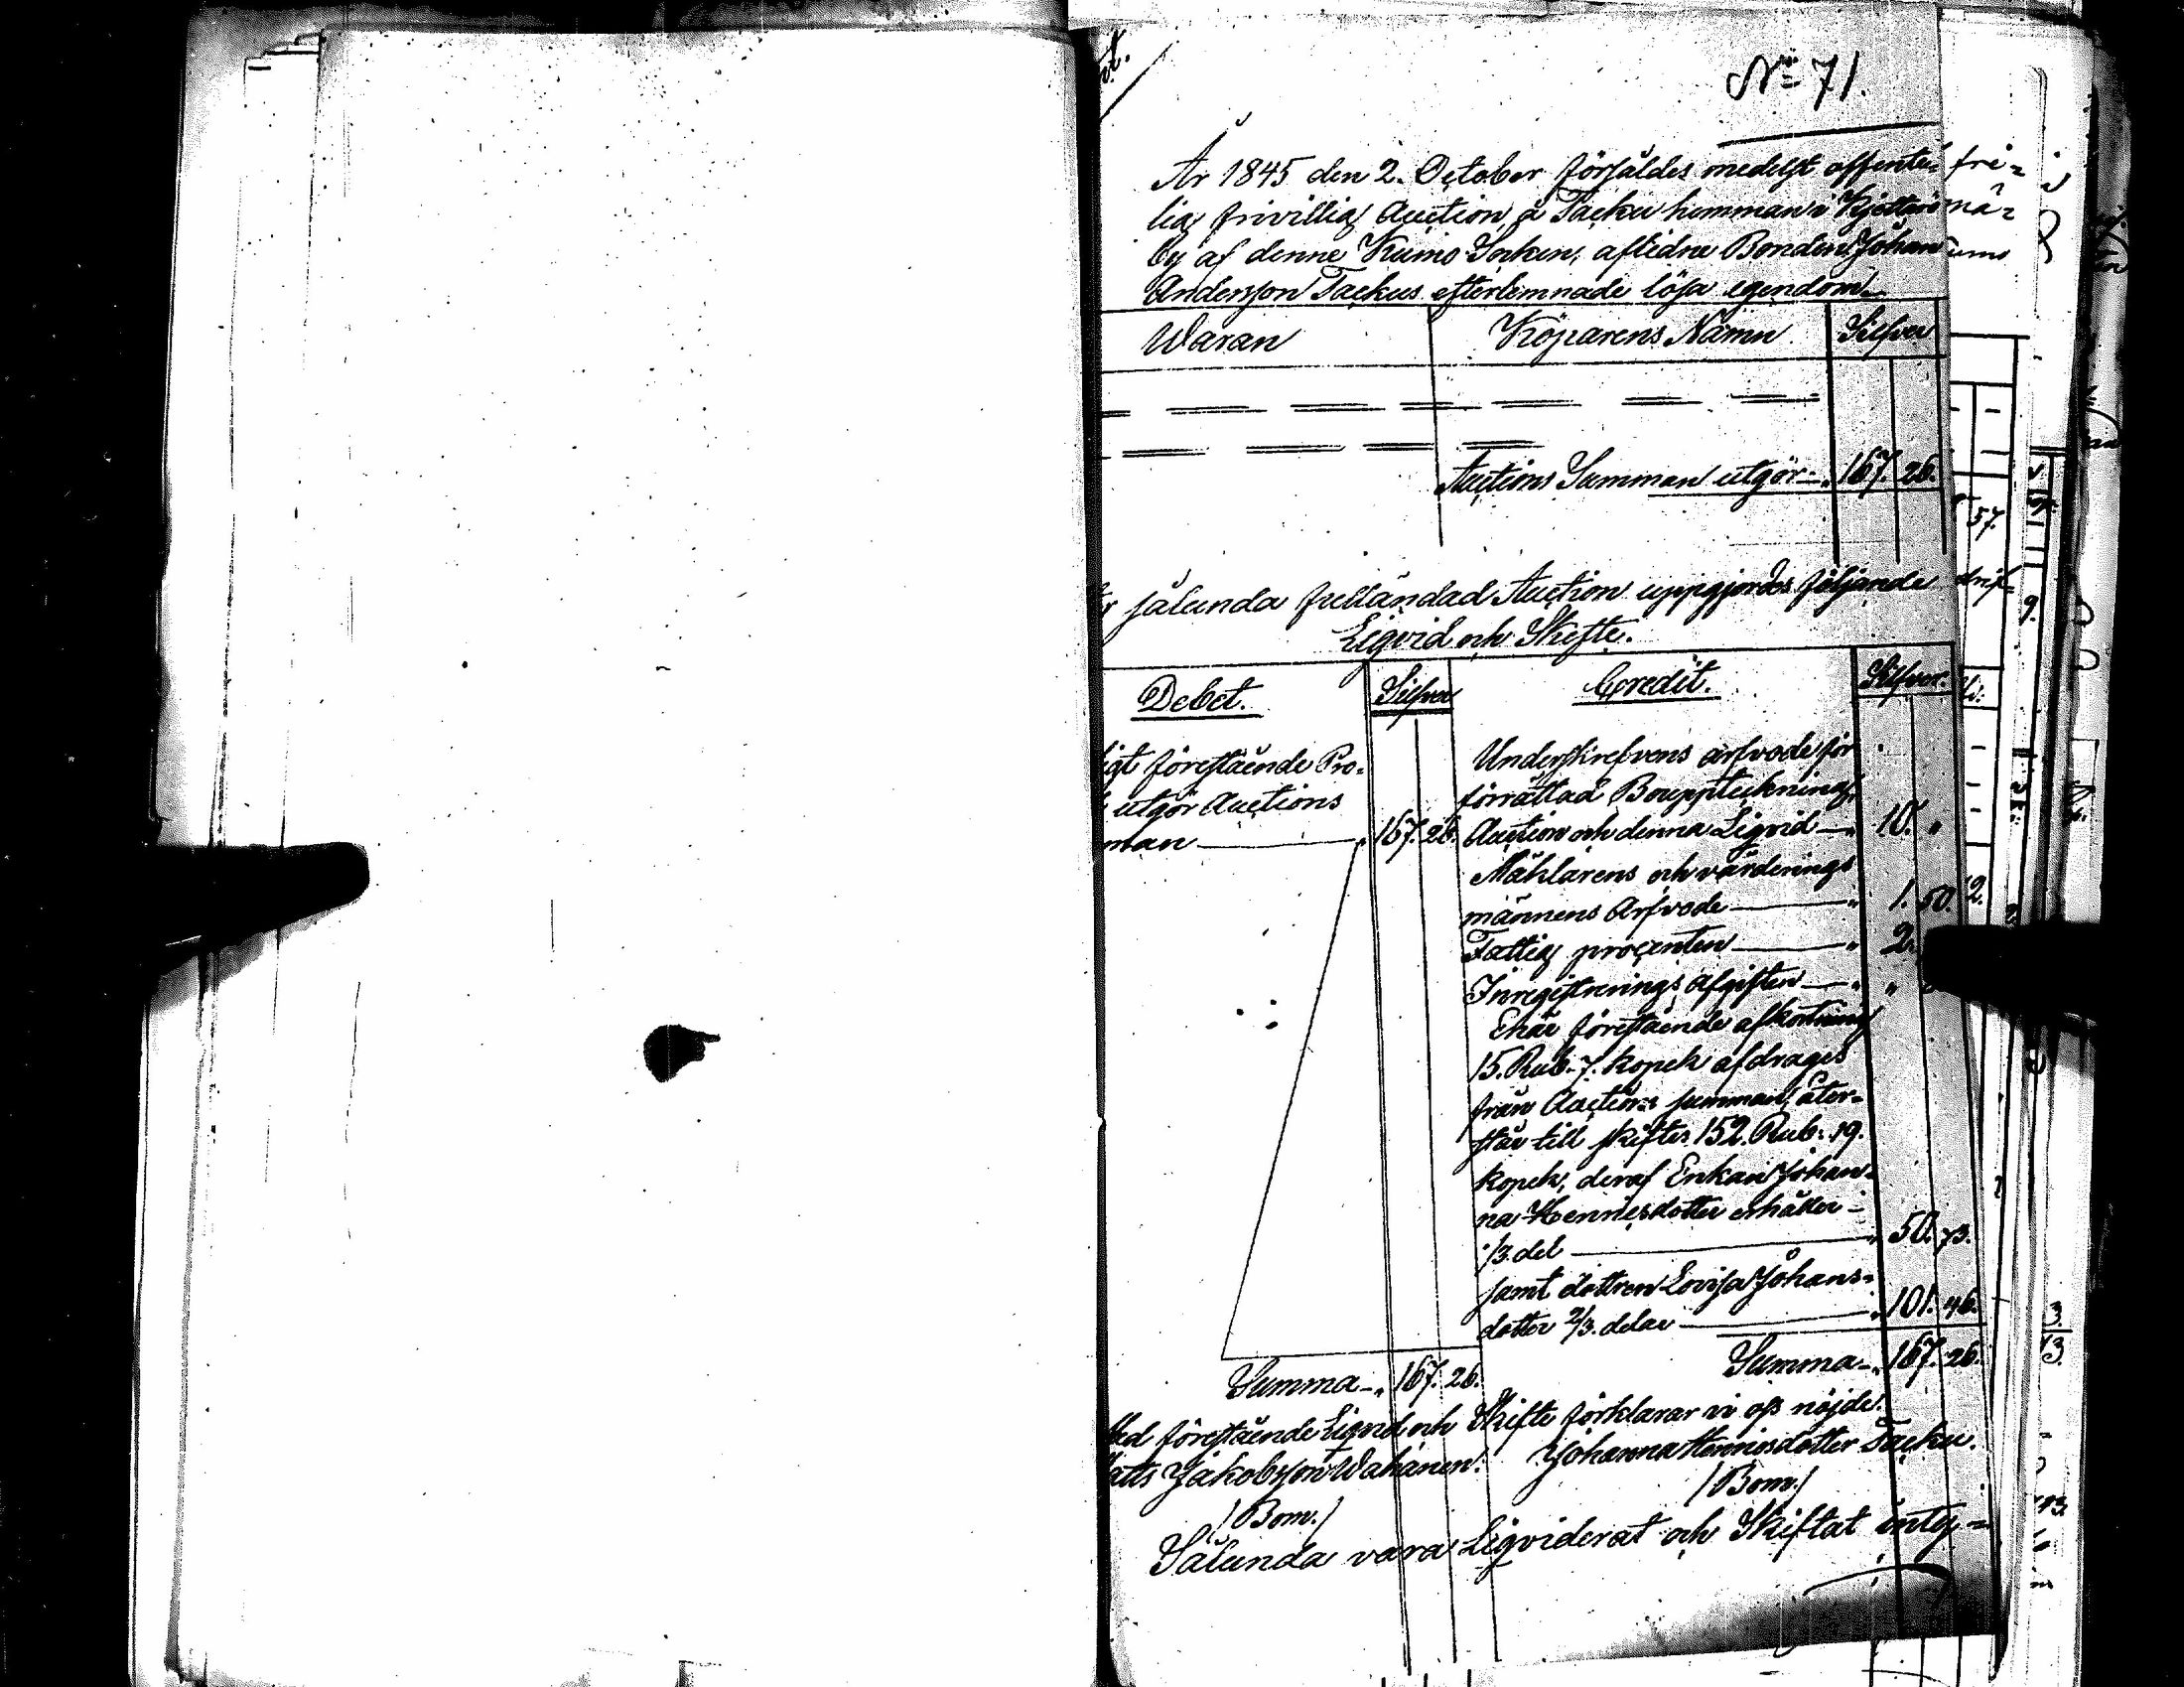 No 71.
År 1845 den 2. October försåldes medelst offent-
lig frivillig Auction å Tacku hemman i
by af denne Kumo Socken, aflidne Bonden Johan
Andersson Tackus efterlemnade lösa egendom
Waran Köparens Namn Silfver
Auctions Summan utgör 167. 26.
sålunda fulländad Auction uppgjordes följande
Liqvid och Skifte.
Debet. Silfver Credit. Silfver.
förestående Pro- Underskrefvens arfvode för
utgör Auctions förrättad Bouppteckning,
man 167. 26. Auction och denna Liqvid 10. "
Mäklarens och värderings
männens Arfvode 1. 50.
Fattig procenten 2.
Inregistrerings afgiften "
Enär förestående afkortning
15. Rub. 7. kopek afdrages
från Auctions summan, åter-
står till skiftes 152. Rub. 19.
kopek, deraf Enkan Johan-
na Hennesdotter erhåller
1/3. del 50. 73.
samt dottren Lovisa Johans-
dotter 2/3. delar 101. 46.
Summa 167. 26. Summa 167. 26.
förestående Liqvid och Skifte förklarar vi oss nöjde.
Jakobsson Wahanen. Johanna Hennesdotter Tacku.
/Bom./ /Bom./
Sålunda vara Liqviderat och Skiftat inty-